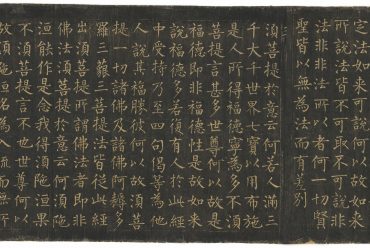 定法如来可說何以故如来
所說法皆不可取不可說非
法非非法所以者何一切賢
聖皆以無為法而有差別
須菩提於意云何若人滿三
千大千世界七寶以用布施
是人所得福德寧為多不須
菩提言甚多世尊何以故是
福德即非福德性是故如来
說福德多若復有人於此經
中受持乃至四句偈等為他
人說其福勝彼何以故須菩
提一切諸佛及諸佛阿耨多
羅三藐三菩提法皆從此經
出須菩提所謂佛法者即非
佛法須菩提於意云何須陁
洹能作是念我得須陁洹果
不須菩提言不也世尊何以
故須陁洹名為入流而無所